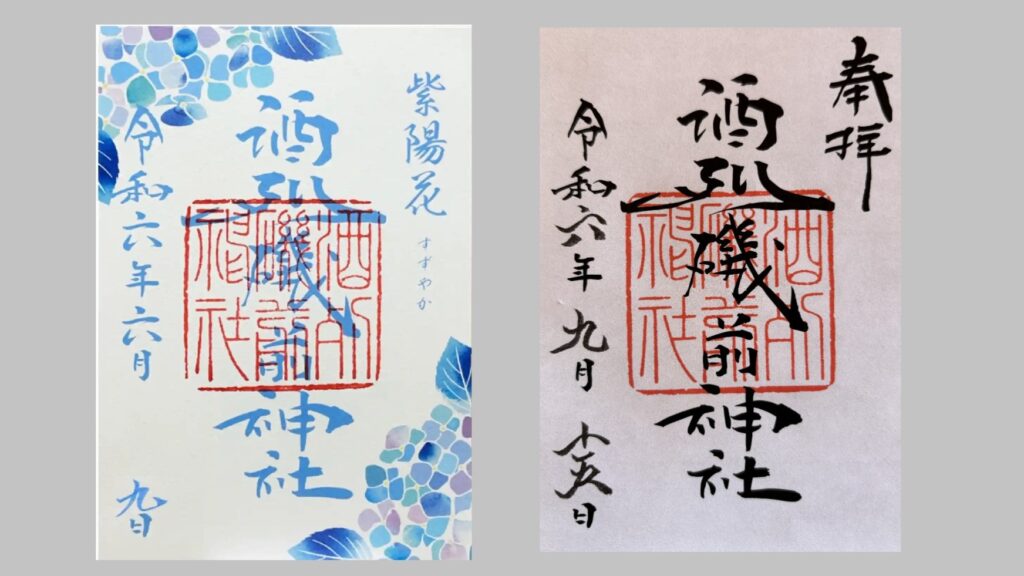 紫陽花
すずやか
酒列磯前神社
酒列
磯前
神社
令和六年六月
九日
奉拝
酒列磯前神社
酒列
磯前
神社
令和六年九月
五日